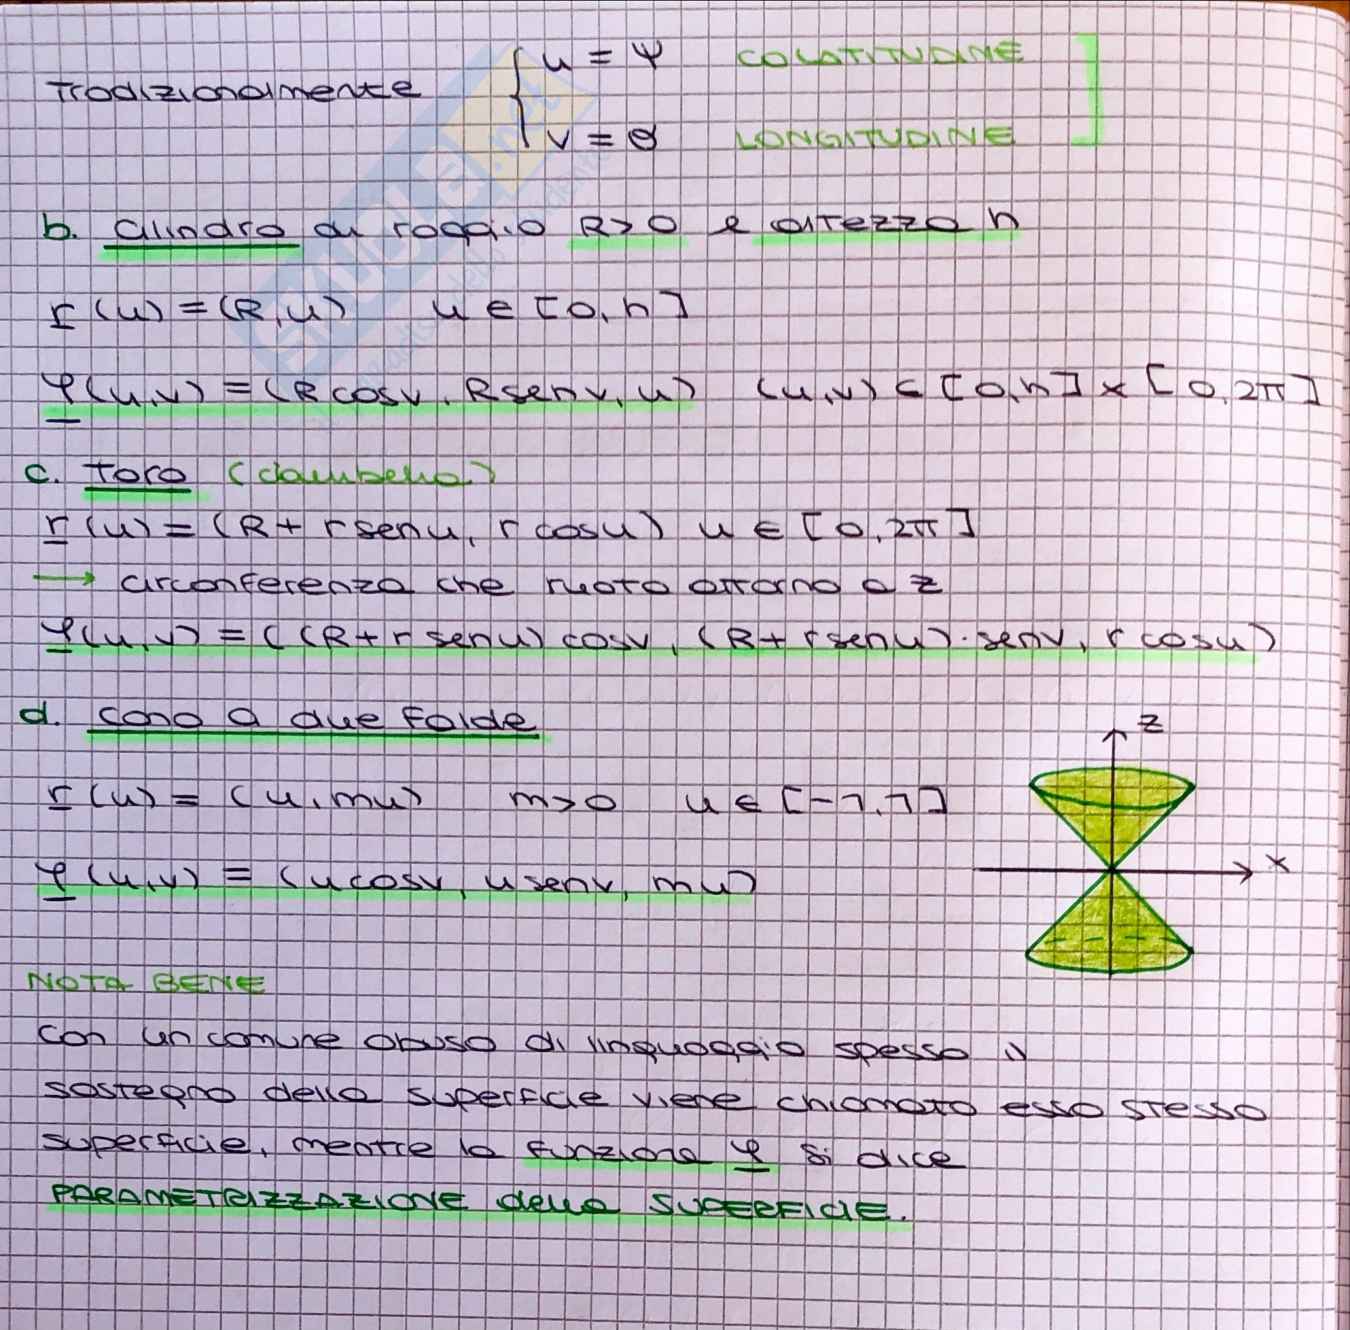 Tradizionalmente { u = ψ COLATITUDINE
v = θ LONGITUDINE ]
b. Cilindro di raggio R>0 e altezza h
r(u) = (R, u) u ∈ [0, h]
φ(u,v) = (Rcosv, Rsenv, u) (u,v) ⊂ [0,h] × [0, 2π]
c. Toro (ciambella)
r(u) = (R + r senu, r cosu) u ∈ [0, 2π]
→ circonferenza che ruota attorno a z
φ(u,v) = ((R + r senu) cosv, (R + r senu)·senv, r cosu)
d. Cono a due falde
r(u) = (u, mu) m>0 u ∈ [-1,1]
z
φ(u,v) = (ucosv, usenv, mu)
x
NOTA BENE
Con un comune abuso di linguaggio spesso il
sostegno della superficie viene chiamato esso stesso
superficie, mentre la funzione φ si dice
PARAMETRIZZAZIONE della SUPERFICIE.
SKUOLA.net